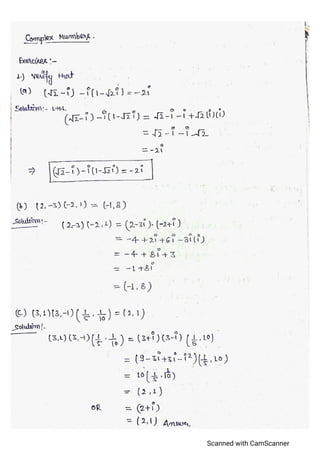 Complex Numbers.
Exercises :-
1.) Verify that
(a) (√2 - i) - i(1-√2i) = -2i
Solution:- L.H.S.
(√2-i) - i(1-√2i) = √2-i-i+√2(i)(i)
= √2-i-i-√2
= -2i
⇒ (√2-i)-i(1-√2i) = -2i
(b) (2,-3)(-2,1) = (-1,8)
Solution:- (2,-3)(-2,1) = (2-3i).(-2+i)
= -4+2i+6i-3i(i)
= -4+8i+3
= -1+8i
= (-1,8)
(c) (3,1)(3,-1)(1/5, 1/10) = (2,1)
Solution:-
(3,1)(3,-1)(1/5, 1/10) = (3+i)(3-i)(1/5, 10)
= (9-3i+3i-i²)(1/5, 10)
= 10(1/5, 10)
= (2,1)
OR = (2+i)
= (2,1) Answer.
Scanned with CamScanner